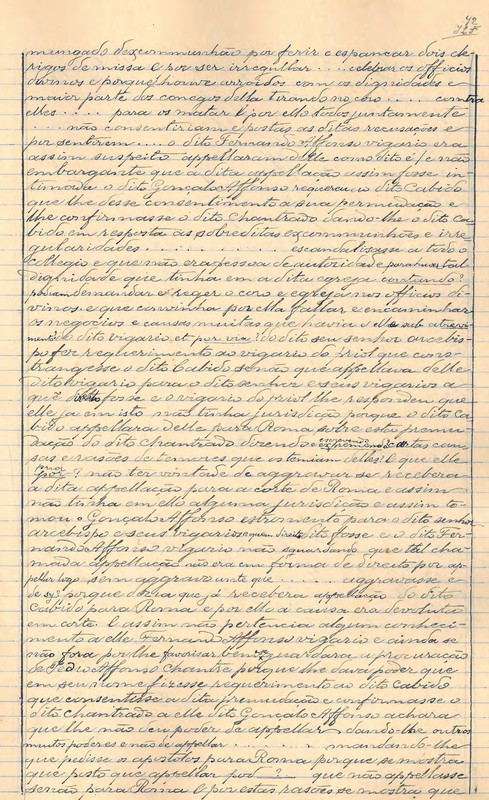 42
mungado dexcommunhão por ferir e espancar dois cle-
rigos de missa e por ser irregullar .... celebrar os officios
divinos e porque houve arroidos com os dignidades e
maior parte dos conegos della tirando no côro .... contra
elles ...... para os matar e por ello todos juntamente
... não consentiriam e postas as ditas recusações e
por sentirem ... o dito Fernando Affonso vigario era
assim suspeito appellaram delle como dito é, e não
embargante que a dita appellação assim fosse in-
timada o dito Gonçalo Affonso requereu ao dito Cabido
que lhe desse consentimento a sua permudação e
lhe confirmasse o dito Chantrado dando-lhe o dito Ca-
bido em resposta as sobreditas excommunhões e irre-
gularidades ............ escandalisasse a todo o
collegio e que não era pessoa de autoridade para haver tal
dignidade que tinha em a dita egreja cantando?
podiam demandar e reger o coro e egreja nos officios di-
vinos e que convinha por ella fallar e encaminhar
os negocios e causas muitas que havia e elle sub
mente o dito vigario, et por via do dito seu senhor arcebis-
po fez requerimento ao vigario do priol que cons-
trangesse o dito Cabido senão que appellava delle
dito vigario para o dito senhor e seus vigarios a
que fosse e o vigario do priol lhe respondeu que
elle ja em isto não tinha jurisdição porque o dito Ca-
bido appellara delle para Roma sobre esta premu-
dação do dito chantrado dizendo e exprimindo certas cau-
sas e rasões de temores que os temiam delles? E que elle
por? não ter vontade de aggravar se recebera
a dita appellação para a corte de Roma e assim
não tinha em ello alguma jurisdição e assim to-
mou o Gonçalo Affonso estromento para o dito senhor
arcebispo e seus vigarios a quem direito dito fosse e o dito Fer-
nando Affonso vigario não esguardando que tal cha-
mada appellação não era em forma de direito por ap-
pellar logo sem aggravo ante que ...... aggravasse e
de sy? porque dizia que já recebera appellação do dito
Cabido para Roma e por ella a causa era devoluta
em corte. E assim não pertencia algum conheci-
mento a elle Fernando Affonso vigario e ainda se
não fora por lhe favorisar bem guardara a procuração
de Pedro Affonso Chantre porque lhe dava poder que
em seu nome fizesse requerimento ao dito Cabido
que consentisse a dita premudação e confirmasse o
dito chantrado a elle dito Gonçalo Affonso achara
que lhe não deu poder de appellar dando-lhe outros
muitos poderes e não de appellar ........ mandando-lhe
que pedisse os apostolos para Roma porque se mostra
que posto que appellar pod ? que não appellasse
senão para Roma e por estas rasões se mostra que